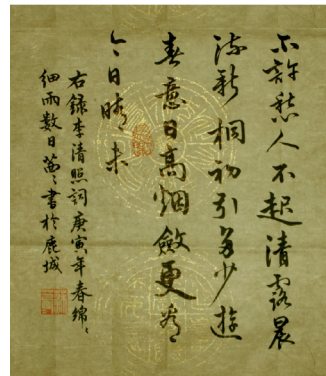 不許愁人不起清露晨
流新桐初引多少遊
春意日高烟斂更看
今日晴未
右録李清照詞庚寅年春綿綿
細雨数日茵茵書於鹿城